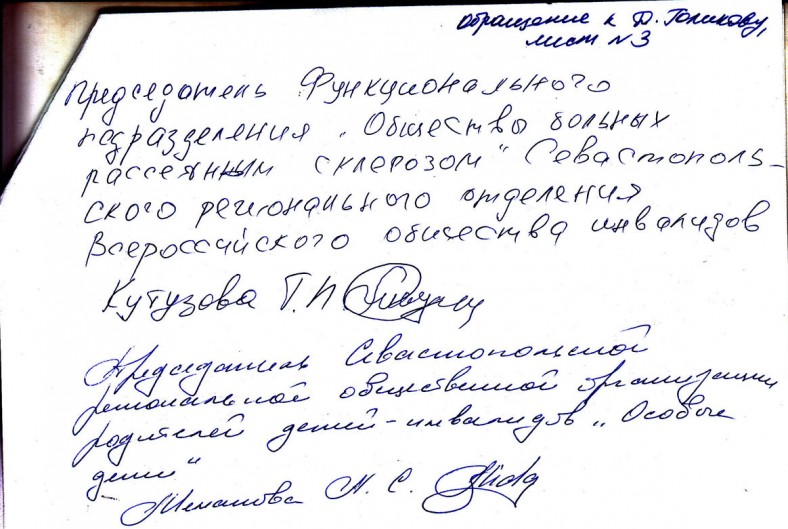 Обращение к Д. Голикову,
лист №3
Председатель Функционального
подразделения „Общества больных
рассеянным склерозом" Севастополь-
ского регионального отделения
Всероссийского общества инвалидов
Кутузова Т.П.
Председатель Севастопольской
региональной общественной организации
родителей детей-инвалидов „Особые
дети"
Н. С.